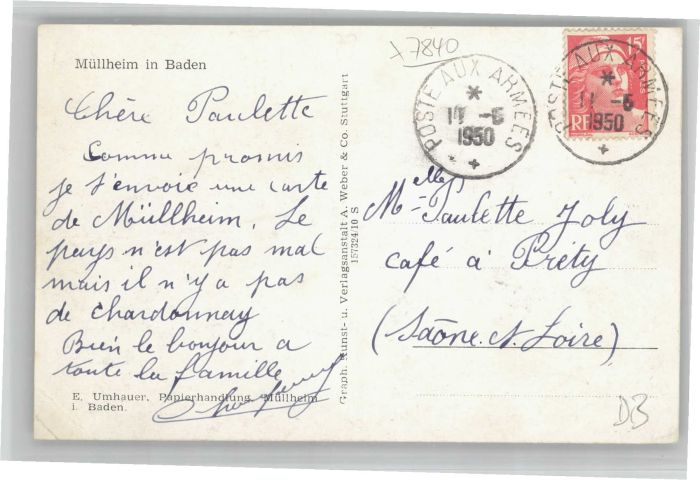 Müllheim in Baden
Chère Paulette
Comme promis
je t'envoie une carte
de Müllheim. Le
pays n'est pas mal
mais il n'y a pas
de chardonnay
Bien le bonjour a
toute la famille
E. Umhauer, Papierhandlung, Müllheim
i. Baden.
Graph. Kunst- u. Verlagsanstalt A. Weber & Co. Stuttgart
157324/10 S
7840
POSTE AUX ARMÉES
* 11 -6
1950
15F
RF
POSTE AUX ARMÉES
* 11 -6
1950
Melle Paulette Joly
café à Préty
(Saône et Loire)
DB